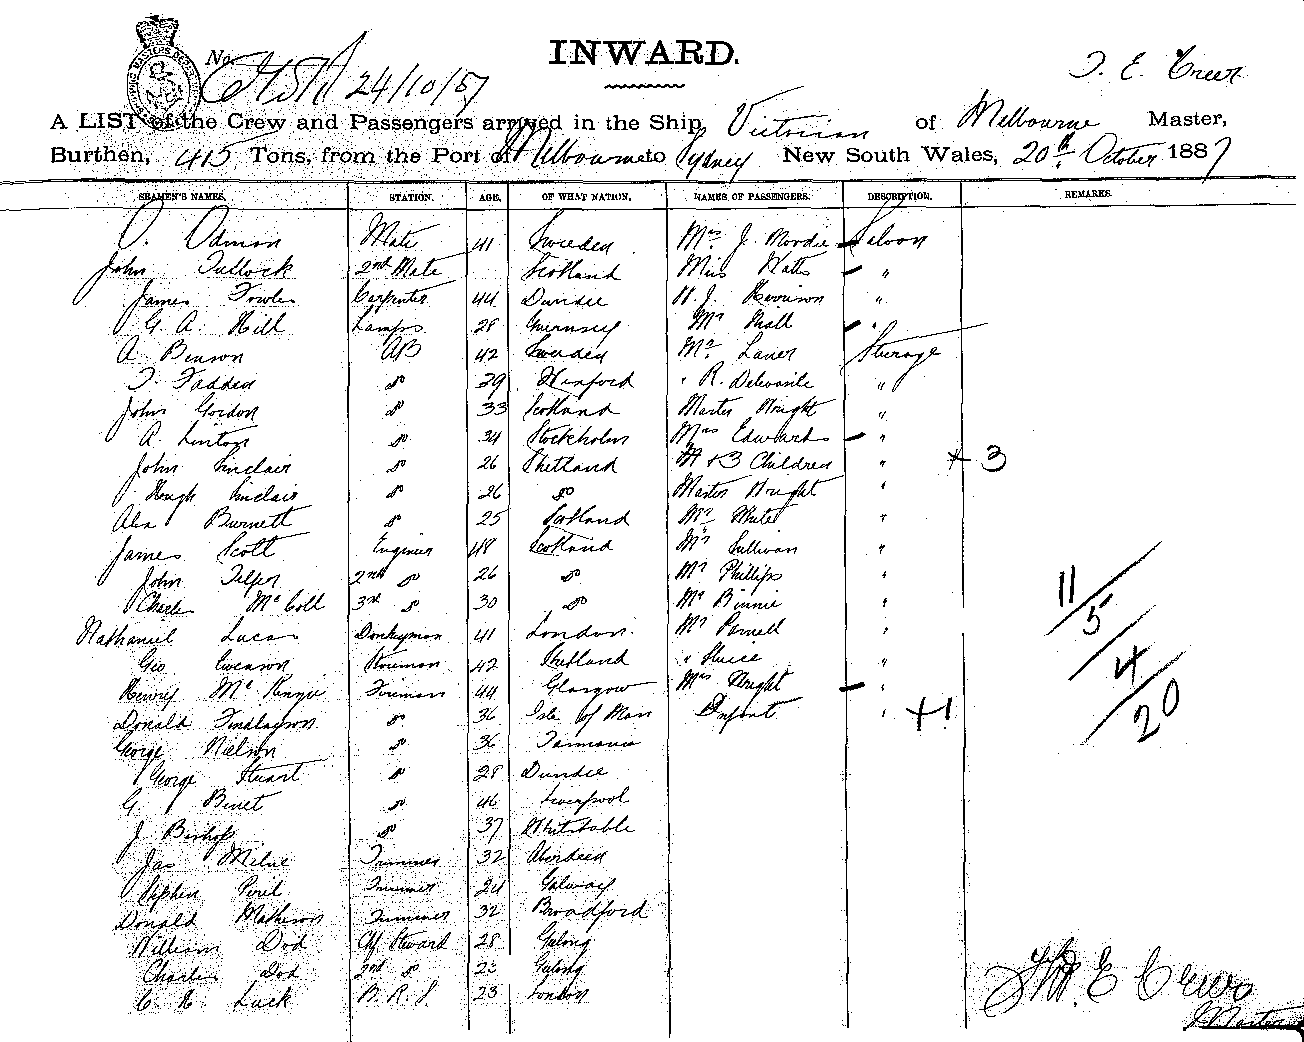 INWARD.
No.
24/10/87
T. E. Creer
A LIST of the Crew and Passengers arrived in the Ship Victorian of Melbourne Master,
Burthen, 415 Tons, from the Port of Melbourne to Sydney New South Wales, 20th October 1887
SEAMEN'S NAMES. STATION. AGE. OF WHAT NATION. NAMES OF PASSENGERS. DESCRIPTION. REMARKS.
O. Odman Mate 41 Sweden Mrs J. Saloon
John Tullock 2nd Mate Scotland Miss Watts "
James Fowler Carpenter 44 Dundee H. J. Harrison "
G. A. Hill Lamps 28 Guernsey Mr Hall "
A Benson AB 42 Sweden Mr Laner Steerage
T. Fadden do 29 Wexford " R. "
John Gordon do 33 Scotland Master Wright "
A. Linton do 34 Stockholm Mrs Edwards "
John Sinclair do 26 Shetland + 3 Children " + 3
Hugh Sinclair do 26 do Master Wright "
Alex Burnett do 25 Scotland Mr White "
James Scott Engineer 48 Scotland Mr Sullivan "
John Telfer 2nd do 26 do Mr Phillips "
Charles McColl 3rd do 30 do Mr Binnie "
Nathaniel Lucas Donkeyman 41 London. Mr Parnell "
Geo Swanson Storeman 42 Shetland " "
Henry McKenzie Fireman 44 Glasgow Mrs Wright "
Donald Findlayson do 36 Isle of Man Infant " +1
George Nielson do 36 Tasmania
George Stuart do 28 Dundee
G. Binet do 46 Liverpool
J. Bishop do 37 Whitstable
Jas Milne Trimmer 32 Aberdeen
Stephen Trimmer 24 Galway
Donald Matheson Trimmer 32 Broadford
William Dod Ch Steward 28 Geelong
Charles Dod 2nd do 23 Geelong
C. H. Luck 23 London
11/5/4/20
Thos. E Creer
Master